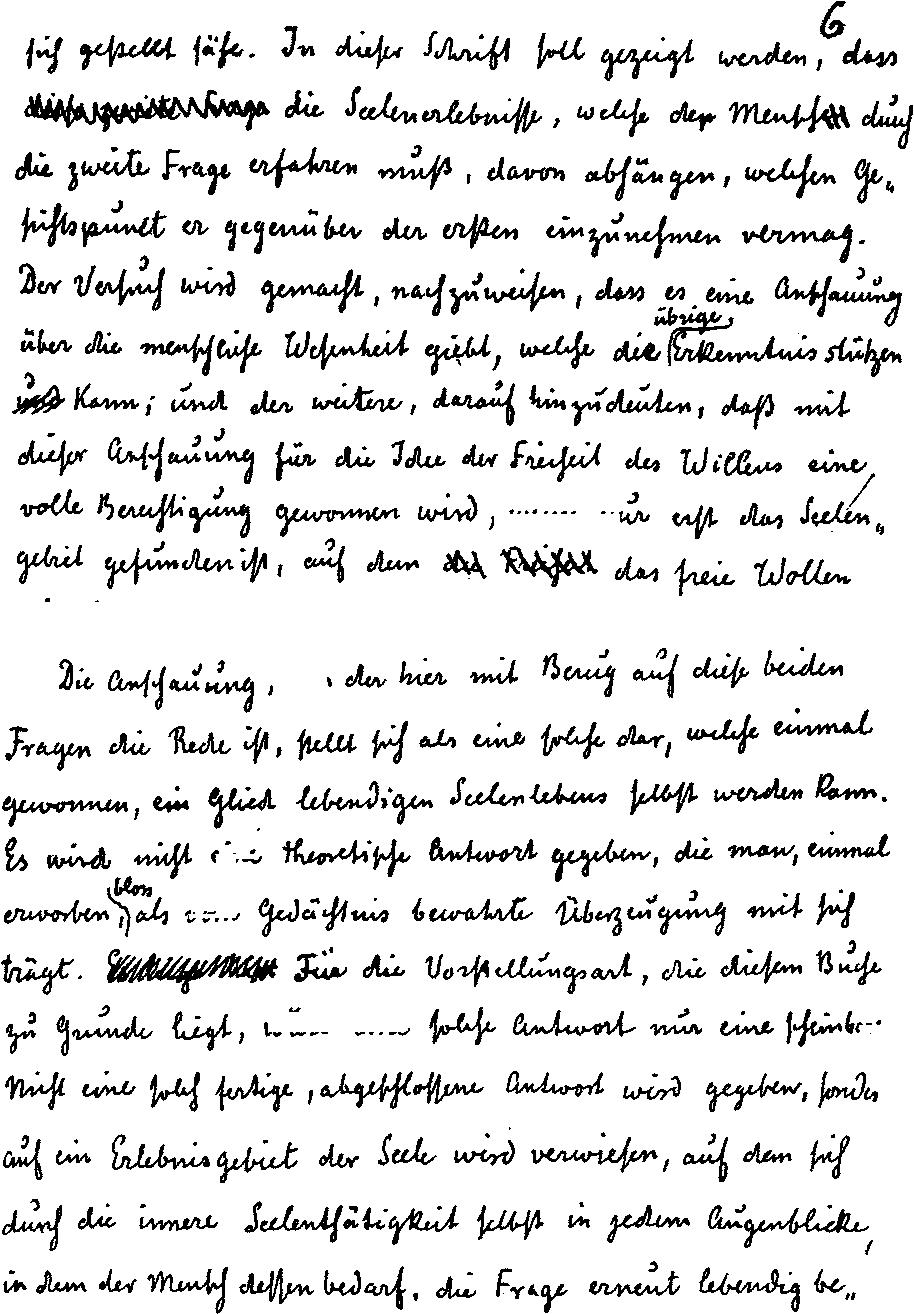 6
sich gestellt sähe. In dieser Schrift soll gezeigt werden, dass
die Seelenerlebnisse, welche der Mensch durch
die zweite Frage erfahren muß, davon abhängen, welchen Ge„
sichtspunkt er gegenüber der ersten einzunehmen vermag.
Der Versuch wird gemacht, nachzuweisen, dass es eine Anschauung
über die menschliche Wesenheit giebt, welche die übrige Erkenntnis stützen
kann; und der weitere, darauf hinzudeuten, daß mit
dieser Anschauung für die Idee der Freiheit des Willens eine
volle Berechtigung gewonnen wird, erst das Seelen„
gebiet gefunden ist, auf dem das freie Wollen
Die Anschauung, der hier mit Bezug auf diese beiden
Fragen die Rede ist, stellt sich als eine solche dar, welche einmal
gewonnen, ein Glied lebendigen Seelenlebens selbst werden kann.
Es wird nicht theoretische Antwort gegeben, die man, einmal
erworben, bloss als Gedächtnis bewahrte Überzeugung mit sich
trägt. Für die Vorstellungsart, die diesem Buche
zu Grunde liegt, solche Antwort nur eine
Nicht eine solch fertige, abgeschlossene Antwort wird gegeben, sondern
auf ein Erlebnisgebiet der Seele wird verwiesen, auf dem sich
durch die innere Seelenthätigkeit selbst in jedem Augenblicke,
in dem der Mensch dessen bedarf, die Frage erneut lebendig be„